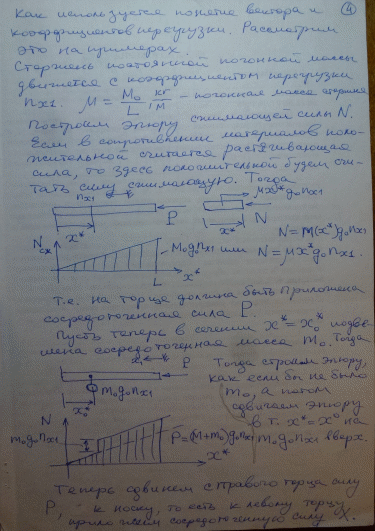 ④
Как используется понятие вектора и
коэффициентов перегрузки. Рассмотрим
это на примерах.
Стержень постоянной погонной массы
движется с коэффициентом перегрузки
nx1. μ = M₀/L, кг/м - погонная масса стержня
Построим эпюру сжимающей силы N.
Если в сопротивлении материалов поло-
жительной считается растягивающая
сила, то здесь положительной будем счи-
тать силу сжимающую. Тогда
nx1 P μx*g₀nx1
x* x* N
N = M(x*)g₀nx1
Nсж M₀g₀nx1 или N = μx*g₀nx1.
L
x*
Т.е. на торце должна быть приложена
сосредоточенная сила P.
Пусть теперь в сечении x* = x₀* подве-
шена сосредоточенная масса m₀. Тогда
x₁ P
Тогда строим эпюру,
как если бы не было
m₀g₀nx1 m₀, а потом
x₀* сдвигаем эпюру
N в т. x* = x₀* на
m₀g₀nx1 P=(M+m₀)g₀nx1 m₀g₀nx1 вверх.
x*
Теперь сдвинем с правого торца силу
P, - к носку, то есть к левому торцу
приложим сосредоточенную силу X.